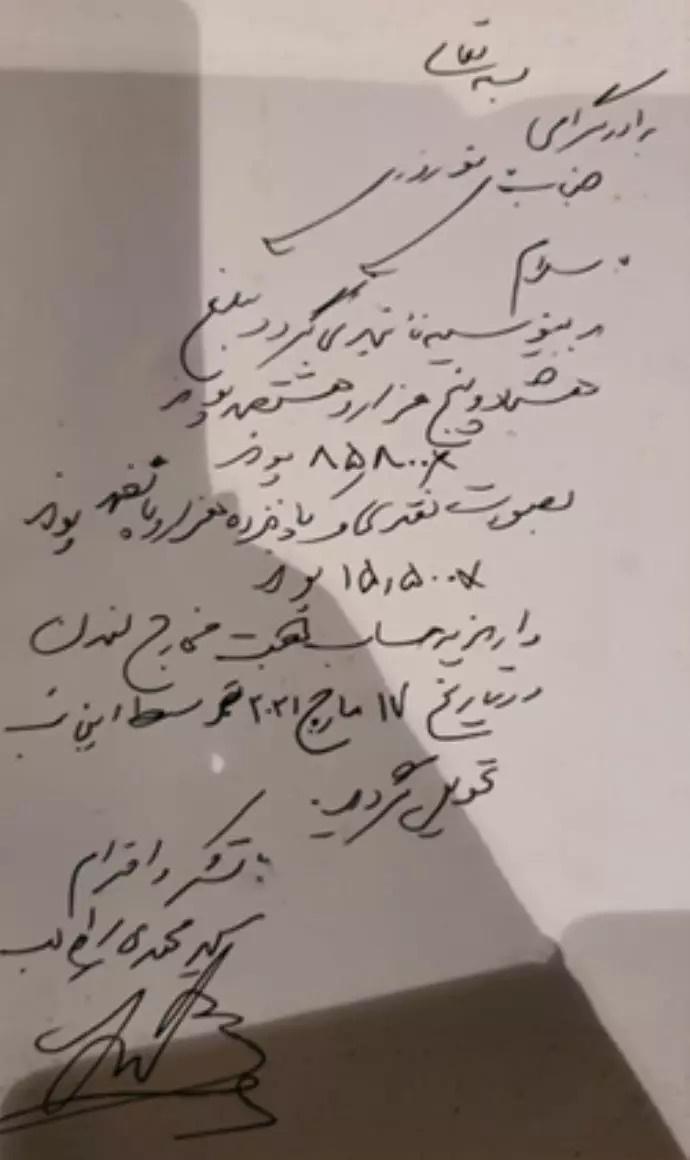 بسمه تعالی
برادر گرامی
جناب آقای نوروزی
با سلام
بدینوسیله تائید می گردد مبلغ
هشتاد و پنج هزار و هشتصد پوند
۸۵,۸۰۰ پوند
بصورت نقدی و پانزده هزار و پانصد پوند
۱۵,۵۰۰ پوند
واریز به حساب جهت مخارج لندن
در تاریخ ۱۷ مارچ ۲۰۲۱ توسط اینجانب
تحویل گردید.
با تشکر و احترام
سید محمدی